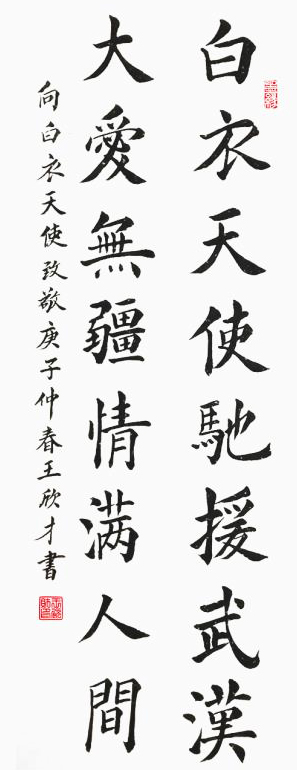 白衣天使馳援武漢
大愛無疆情满人間
向白衣天使致敬庚子仲春王欣才書